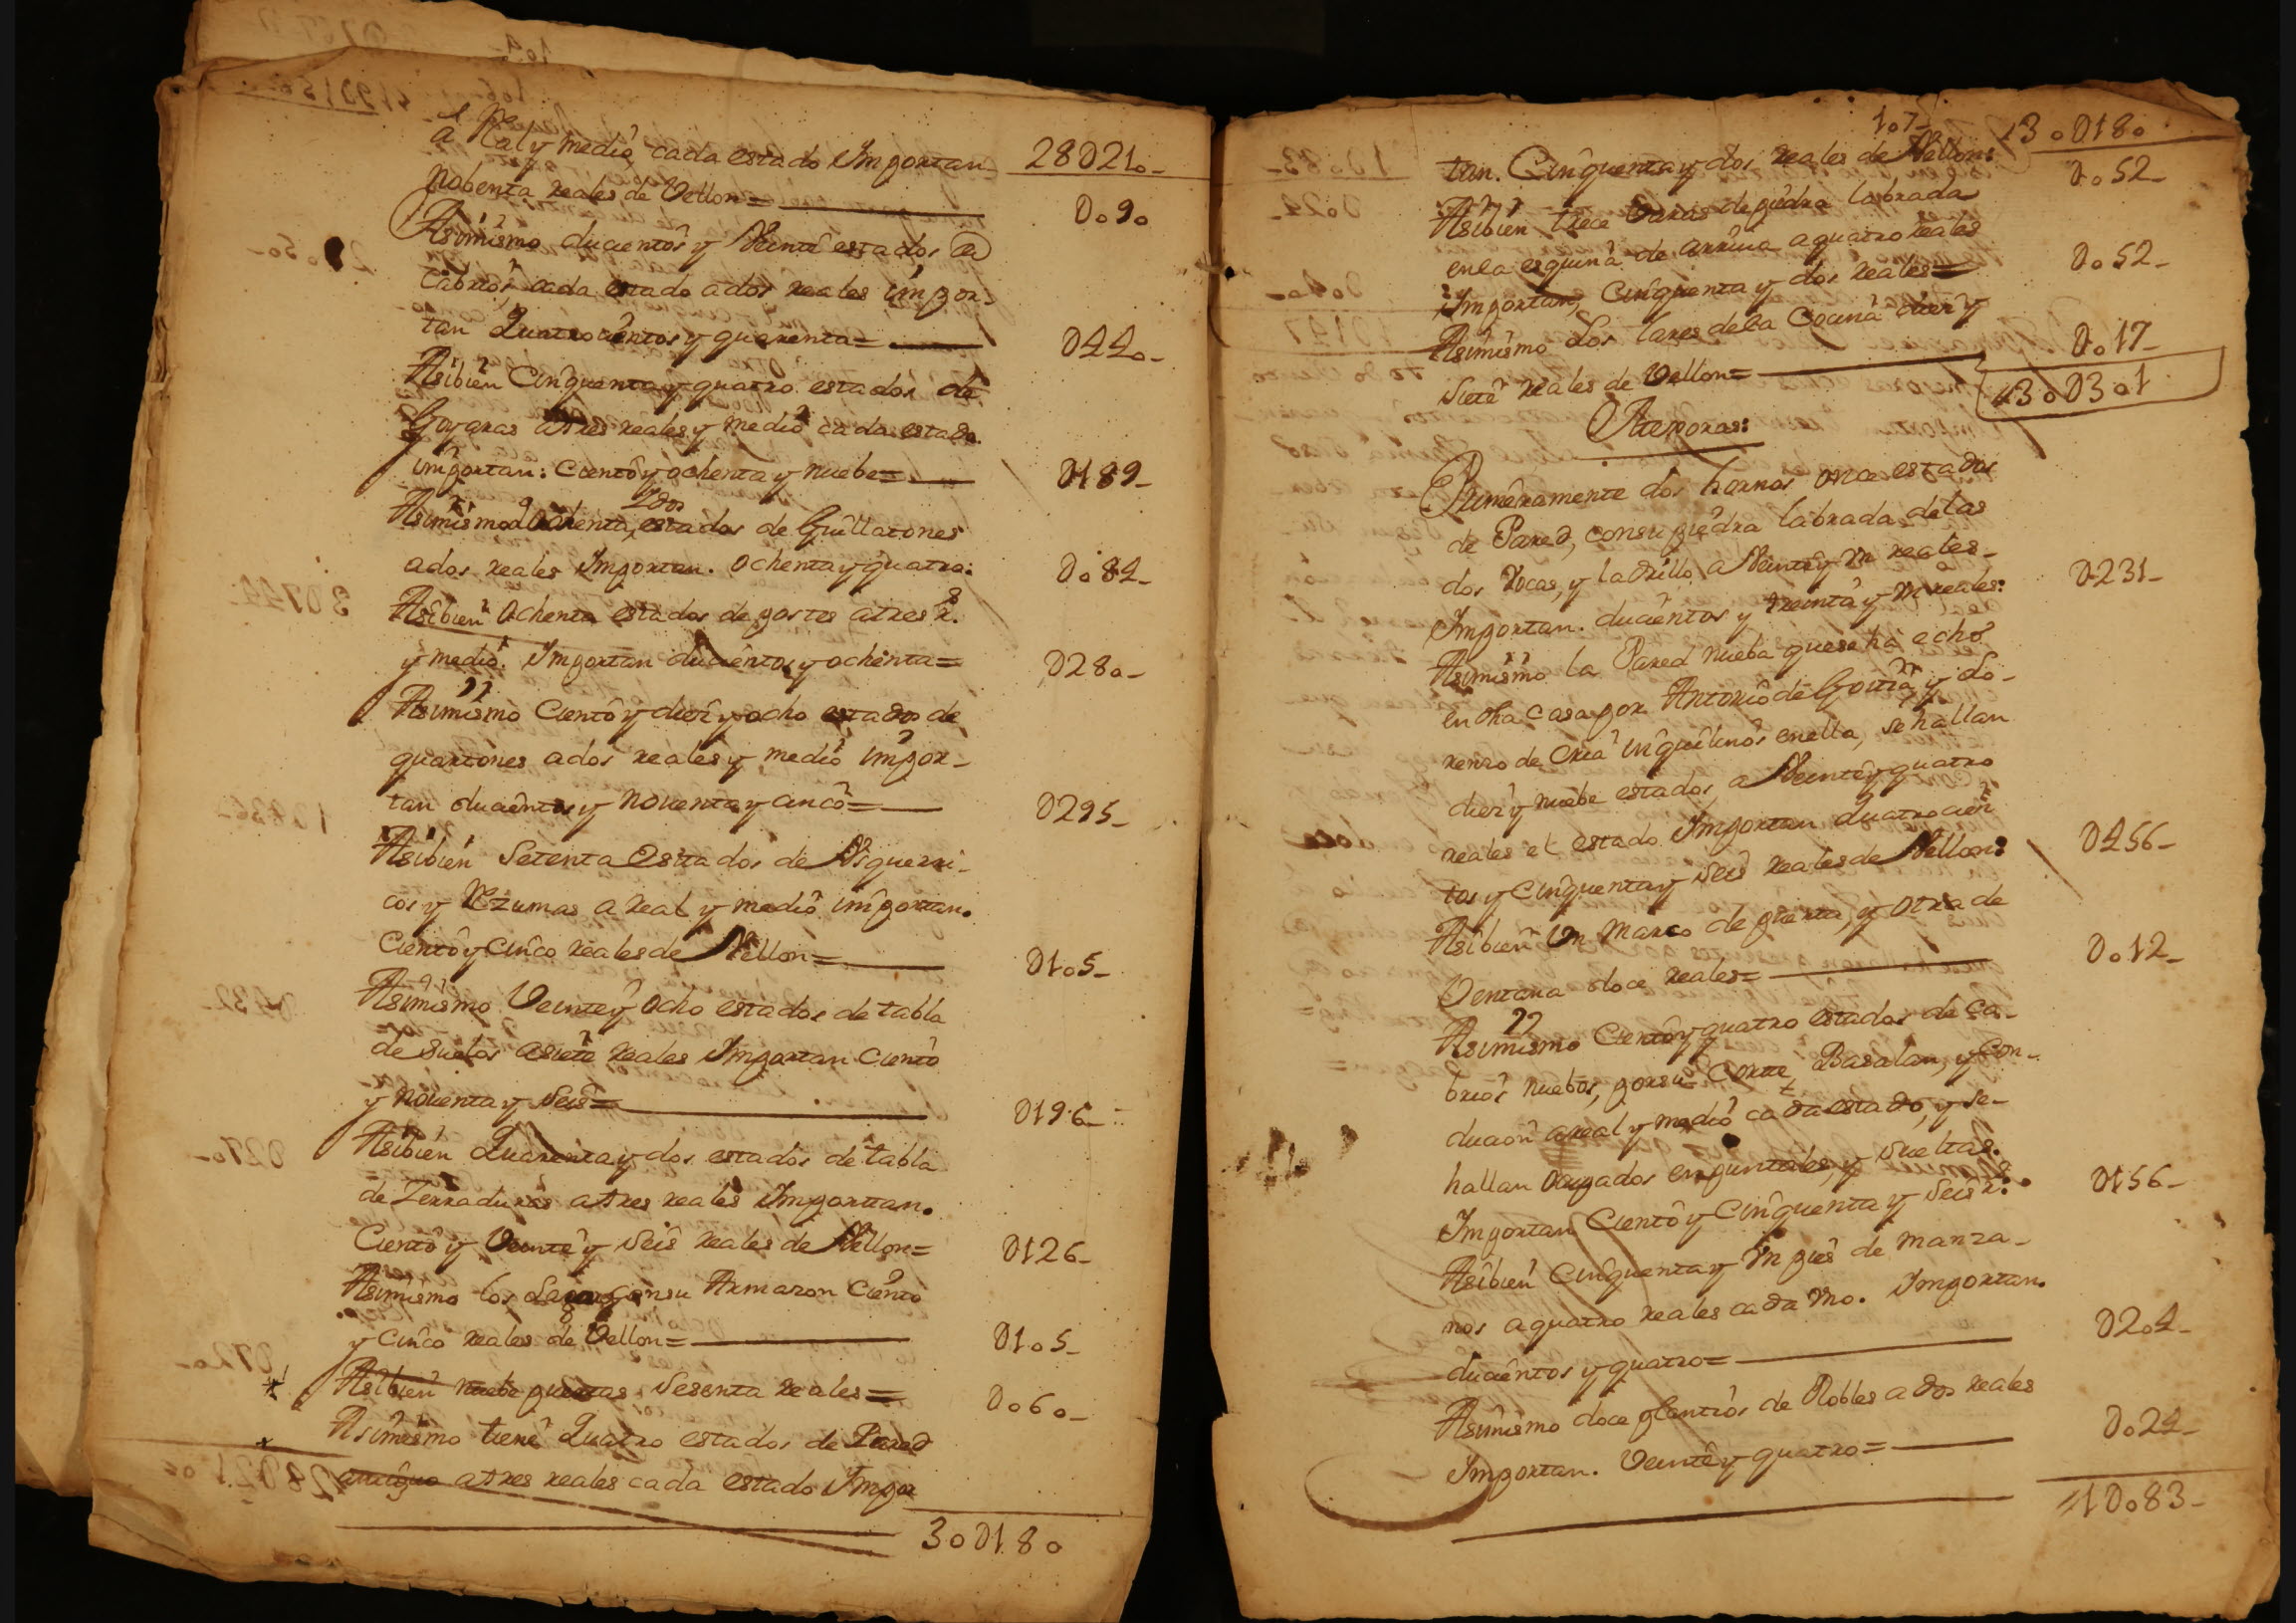 a Real y medio cada estado Importan 28D210-
Nobenta reales de Vellon= D090
Asimismo ducientos y Veinte estados de
Cabrios, cada estado a dos reales impor-
tan Quatrocientos y quarenta= D440-
Asibien Cinquenta y quatro estados de
Goyaras a tres reales y medio cada estado
importan: Ciento y ochenta y nuebe= D189-
Asimismo Quarenta, y dos estados de Guillatones
a dos reales Importan. ochenta y quatro: D084-
Asibien Ochenta estados de postes a tres rs.
y medio. Importan ducientos y ochenta= D280-
Asimismo Ciento y diez y ocho estados de
quartones a dos reales y medio impor-
tan ducientos y Noventa y cinco= D295-
Asibien Setenta Estados de Viguerri-
cos y Rezumas a Real y medio importan.
Ciento y Cinco reales de Vellon= D105-
Asimismo Veinte y Ocho estados de tabla
de suelos a siete reales Importan Ciento
y Noventa y Seis= D196-
Asibien Quarenta y dos estados de tabla
de Zerraduras a tres reales Importan.
Ciento y Veinte y Seis reales de Vellon= D126-
Asimismo los con su Armazon Ciento
y Cinco reales de Vellon= D105-
Asibien nuebe puertas Sesenta reales= D060-
Asimismo tiene Quatro estados de Pared
antiguo a tres reales cada estado Impor
30D180
107- 30D180
tan. Cinquenta y dos reales de Vellon: D052-
Asibien trece Varas de piedra labrada
en la esquina de arriua a quatro reales
Importan, Cinquenta y dos reales= D052-
Asimismo Los lares de la Cocina diez y
Siete reales de Vellon= D017-
30D301
Mexoras:
Primeramente dos hornos once estados
de Pared, con su piedra labrada de las
dos Vocas, y ladrillo, a Veinte y Vn reales-
Importan. ducientos y treinta y Vn reales: D231-
Asimismo la Pared nueba que se ha echo
en dha casa por Antonio de Goitia y Lo-
renzo de Cria inquilinos en ella, se hallan
diez y nuebe estados, a Veinte y quatro
reales el estado Importan Quatrocien
tos y Cinquenta y Seis reales de Vellon: D456-
Asibien Vn Marco de puerta, y otra de
Ventana doce reales= D012-
Asimismo Ciento y quatro estados de Ca-
brios nuebos, por su Corte, Basalan, y Con-
ducion a real y medio cada estado, y se-
hallan Cargados en puntales, y sueltas.
Importan Ciento y Cinquenta y Seis rs. D156-
Asibien Cinquenta y Vn pies de manza-
nos a quatro reales cada Vno. Importan.
ducientos y quatro= D204-
Asimismo doce plantios de Robles a dos reales
Importan. Veinte y quatro= D024-
1D083-